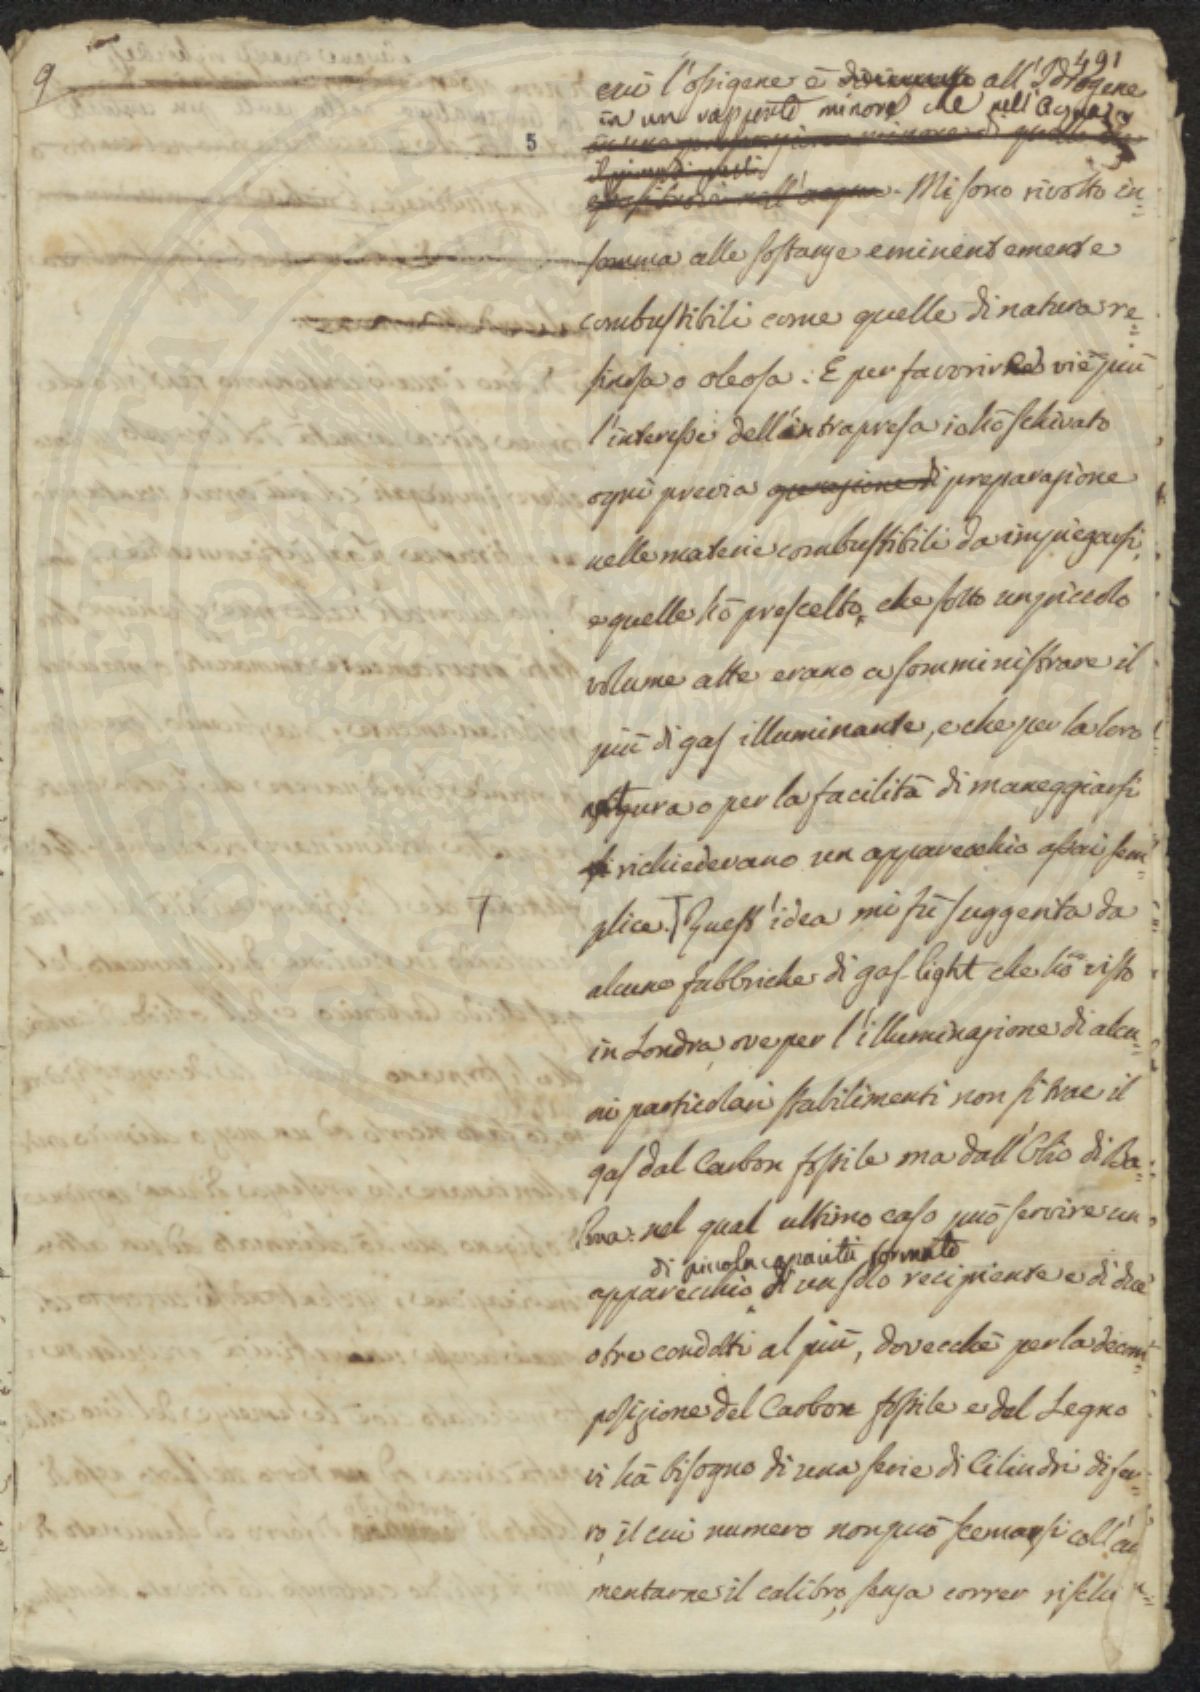 9
491
5
cui l'ossigene è all'Idrogene
in un rapporto minore che nell'acqua
Mi sono rivolto in=
somma alle sostanze eminentemente
combustibili come quelle di natura re=
sinosa o oleosa: E per favorire viè più
l'interesse dell'intrapresa io hò schivato
ogni previa preparazione
nelle materie combustibili da impiegarsi,
e quelle hò prescelto, che sotto un piccolo
volume atte erano a somministrare il
più di gas illuminante, e che per la loro
natura o per la facilità di maneggiarsi
richiedevano un apparecchio assai sem=
plice. Quest'idea mi fù suggerita da
alcune fabbriche di gas-light che hò visto
in Londra, ove per l'illuminazione di alcu=
ni particolari stabilimenti non si trae il
gas dal Carbon fossile ma dall'Olio di Ba=
lena: nel qual ultimo caso può servire un
di piccola capacità formato
apparecchio di un solo recipiente e di due
o tre condotti al più, dovecchè per la decom=
posizione del Carbon fossile e del Legno
vi hà bisogno di una serie di Cilindri di fer=
ro, il cui numero non può scemarsi coll'au
mentarne il calibro, senza correr rischi